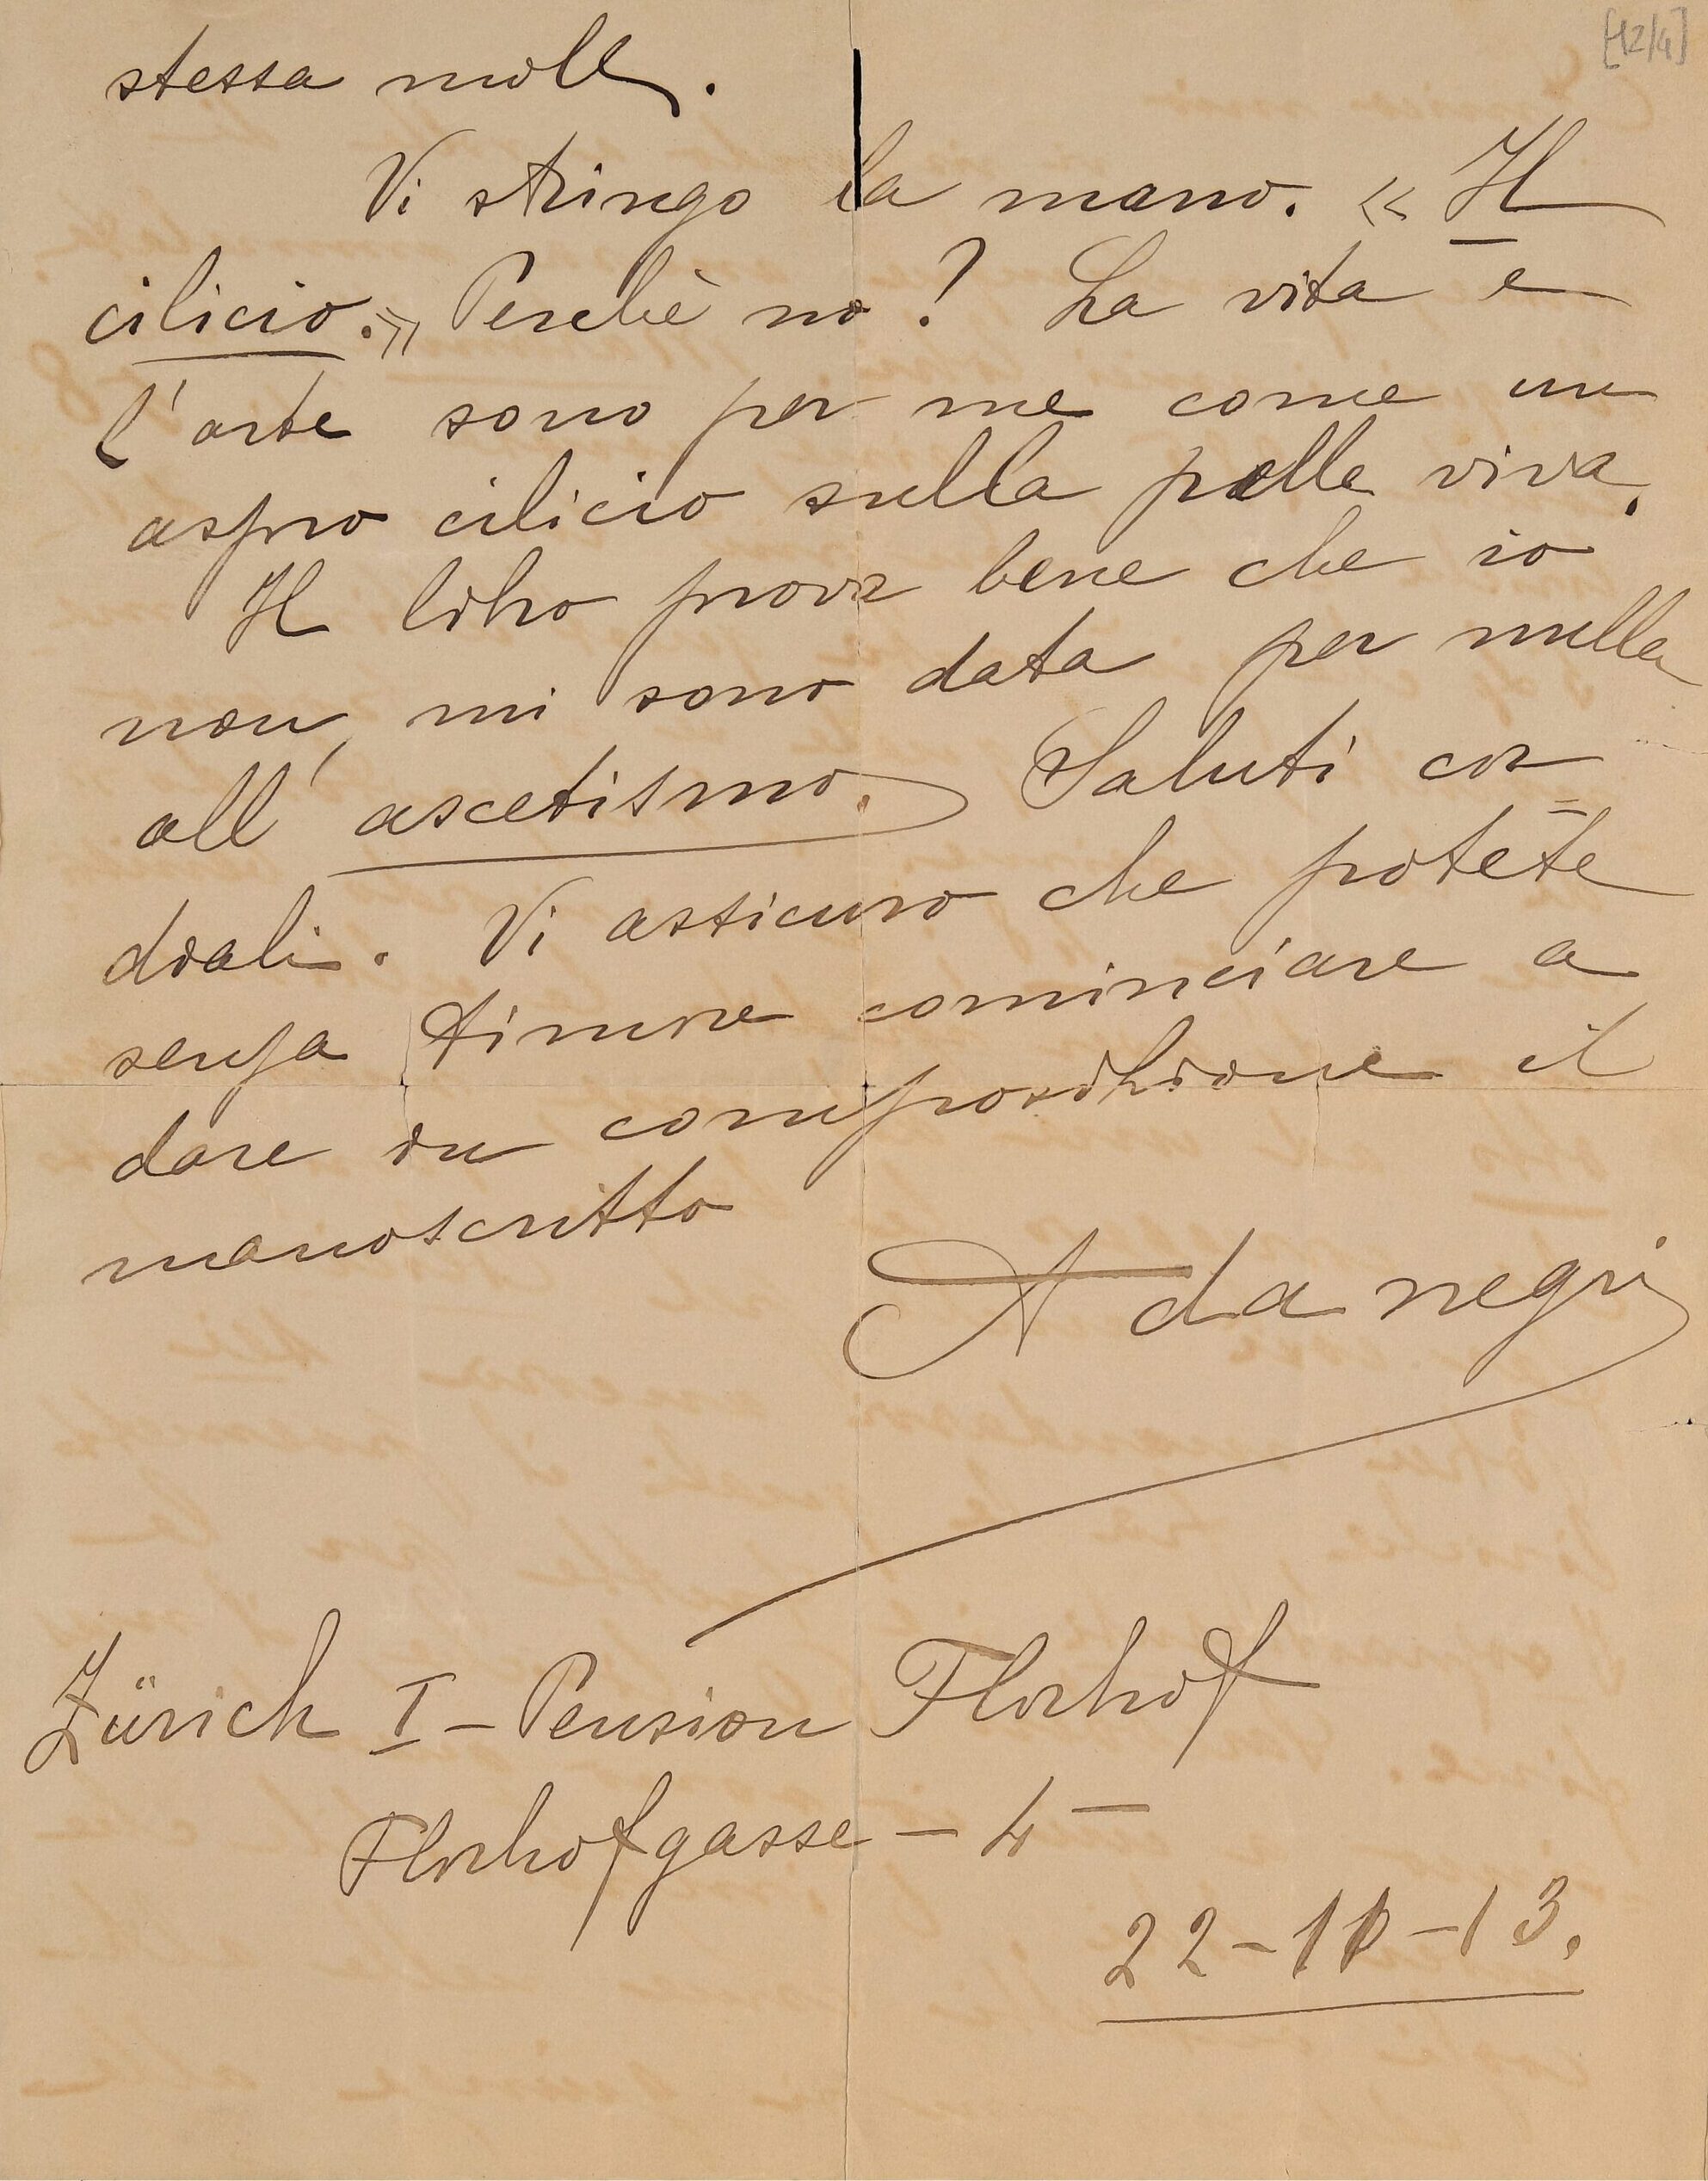 [12/4]
stessa mole.
Vi stringo la mano. « Il
cilicio.» Perchè no? La vita e
l'arte sono per me come un
aspro cilicio sulla pelle viva.
Il libro prova bene che io
non mi sono data per nulla
all'ascetismo. Saluti cor=
diali. Vi assicuro che potete
senza timore cominciare a
dare in composizione il
manoscritto
Ada negri
Zürich I - Pension Florhof
Florhofgasse - 4 -
22-10-13.